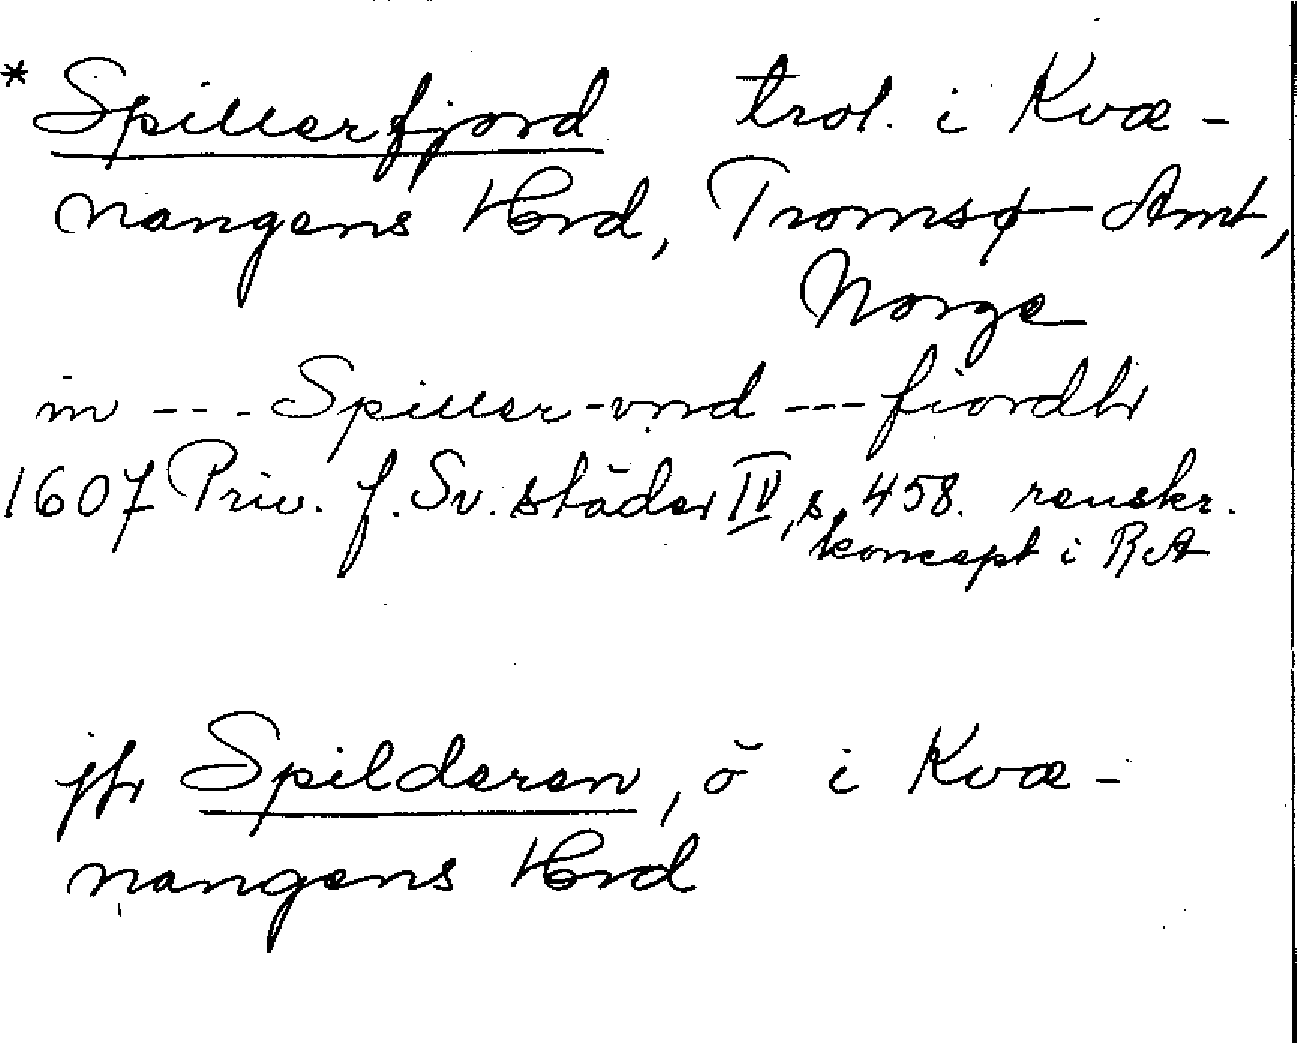 * Spillerfjord trol. i Kvæ-
nangens Hrd, Tromsø Amt,
Norge
in --- Spiller-vnd --- fiordhr
1607 Priv. f. Sv. städer IV, s. 458. renskr.
koncept i RA
jfr Spilderen, ö i Kvæ-
nangens Hrd